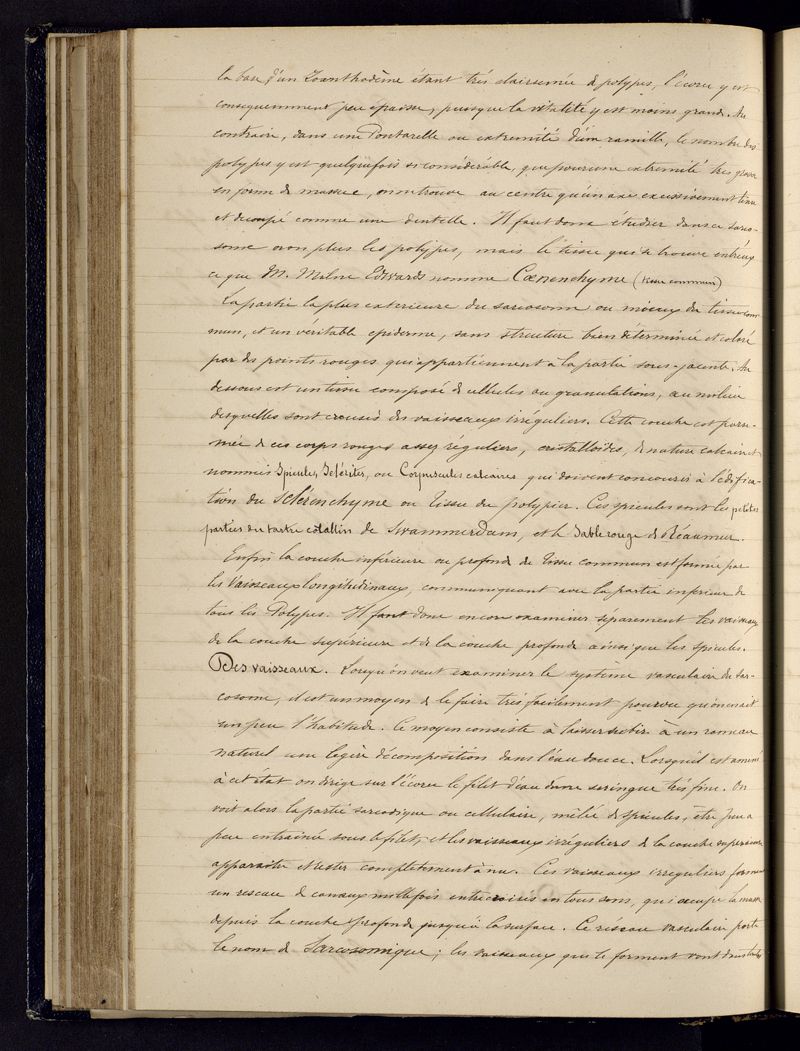 la base d'un Zoanthodème étant très clairsemée de polypes, l'écorce y est
conséquemment peu épaisse, puisque la vitalité y est moins grande. Au
contraire, dans une Pontarelle ou extrémité d'un ramille, le nombre des
polypes y est quelquefois si considérable, que pour une extrémité très grosse
en forme de massue, on ne trouve au centre qu'un axe excessivement tenu
et découpé comme une dentelle. Il faut donc étudier dans ce sarco-
some non plus les polypes, mais le tissu qui se trouve entr'eux
ce que M. Milne Edwards nomme Cœnenchyme (tissu commun)
La partie la plus exterieure du sarcosome ou mieux du tissu com-
mun, est un véritable epiderme, sans structure bien déterminée et coloré
par des points rouges qui appartiennent à la partie sous-jacente. Au
dessous est un tissu composé de cellules ou granulations, au milieu
desquelles sont creusés des vaisseaux irréguliers. Cette couche est parse-
mée de ces corps rouges assez réguliers, cristalloïdes, de nature calcaire et
nommés Spicules, Sclérites, ou Corpuscules calcaires qui doivent concourir à l'édifica-
tion du Sclérenchyme ou tissu du polypier. Ces spicules sont les petites
parties du tartre corallin de Swammerdam, et le Sable rouge de Réaumur.
Enfin la couche inférieure ou profonde du tissu commun est formée par
les Vaisseaux longitudinaux, communiquant avec la partie inférieure de
tous les Polypes. Il faut donc encore examiner séparement les vaisseaux
de la couche supérieure et de la couche profonde ainsi que les spicules.
Des vaisseaux. Lorsqu'on veut examiner le systeme vasculaire du Sar-
cosome, il est un moyen de le faire très facilement pourvu qu'on en ait
un peu l'habitude. Ce moyen consiste à laisser subir à un rameau
naturel une légère décomposition dans l'eau douce. Lorsqu'il est amené
à cet état on dirige sur l'écorce le filet d'eau d'une seringue très fine. On
voit alors la partie sarcodique ou cellulaire, mêlée de spicules, être peu à
peu entrainée sous le filet, et les vaisseaux irréguliers de la couche supérieure
apparaitre et rester complètement à nu. Ces vaisseaux irreguliers forment
un reseau de canaux mille fois entrecroisés en tous sens, qui occupe la masse
depuis la couche profonde jusqu'à la surface. Ce réseau vasculaire porte
le nom de Sarcosomique; les vaisseaux qui le forment vont dans toutes